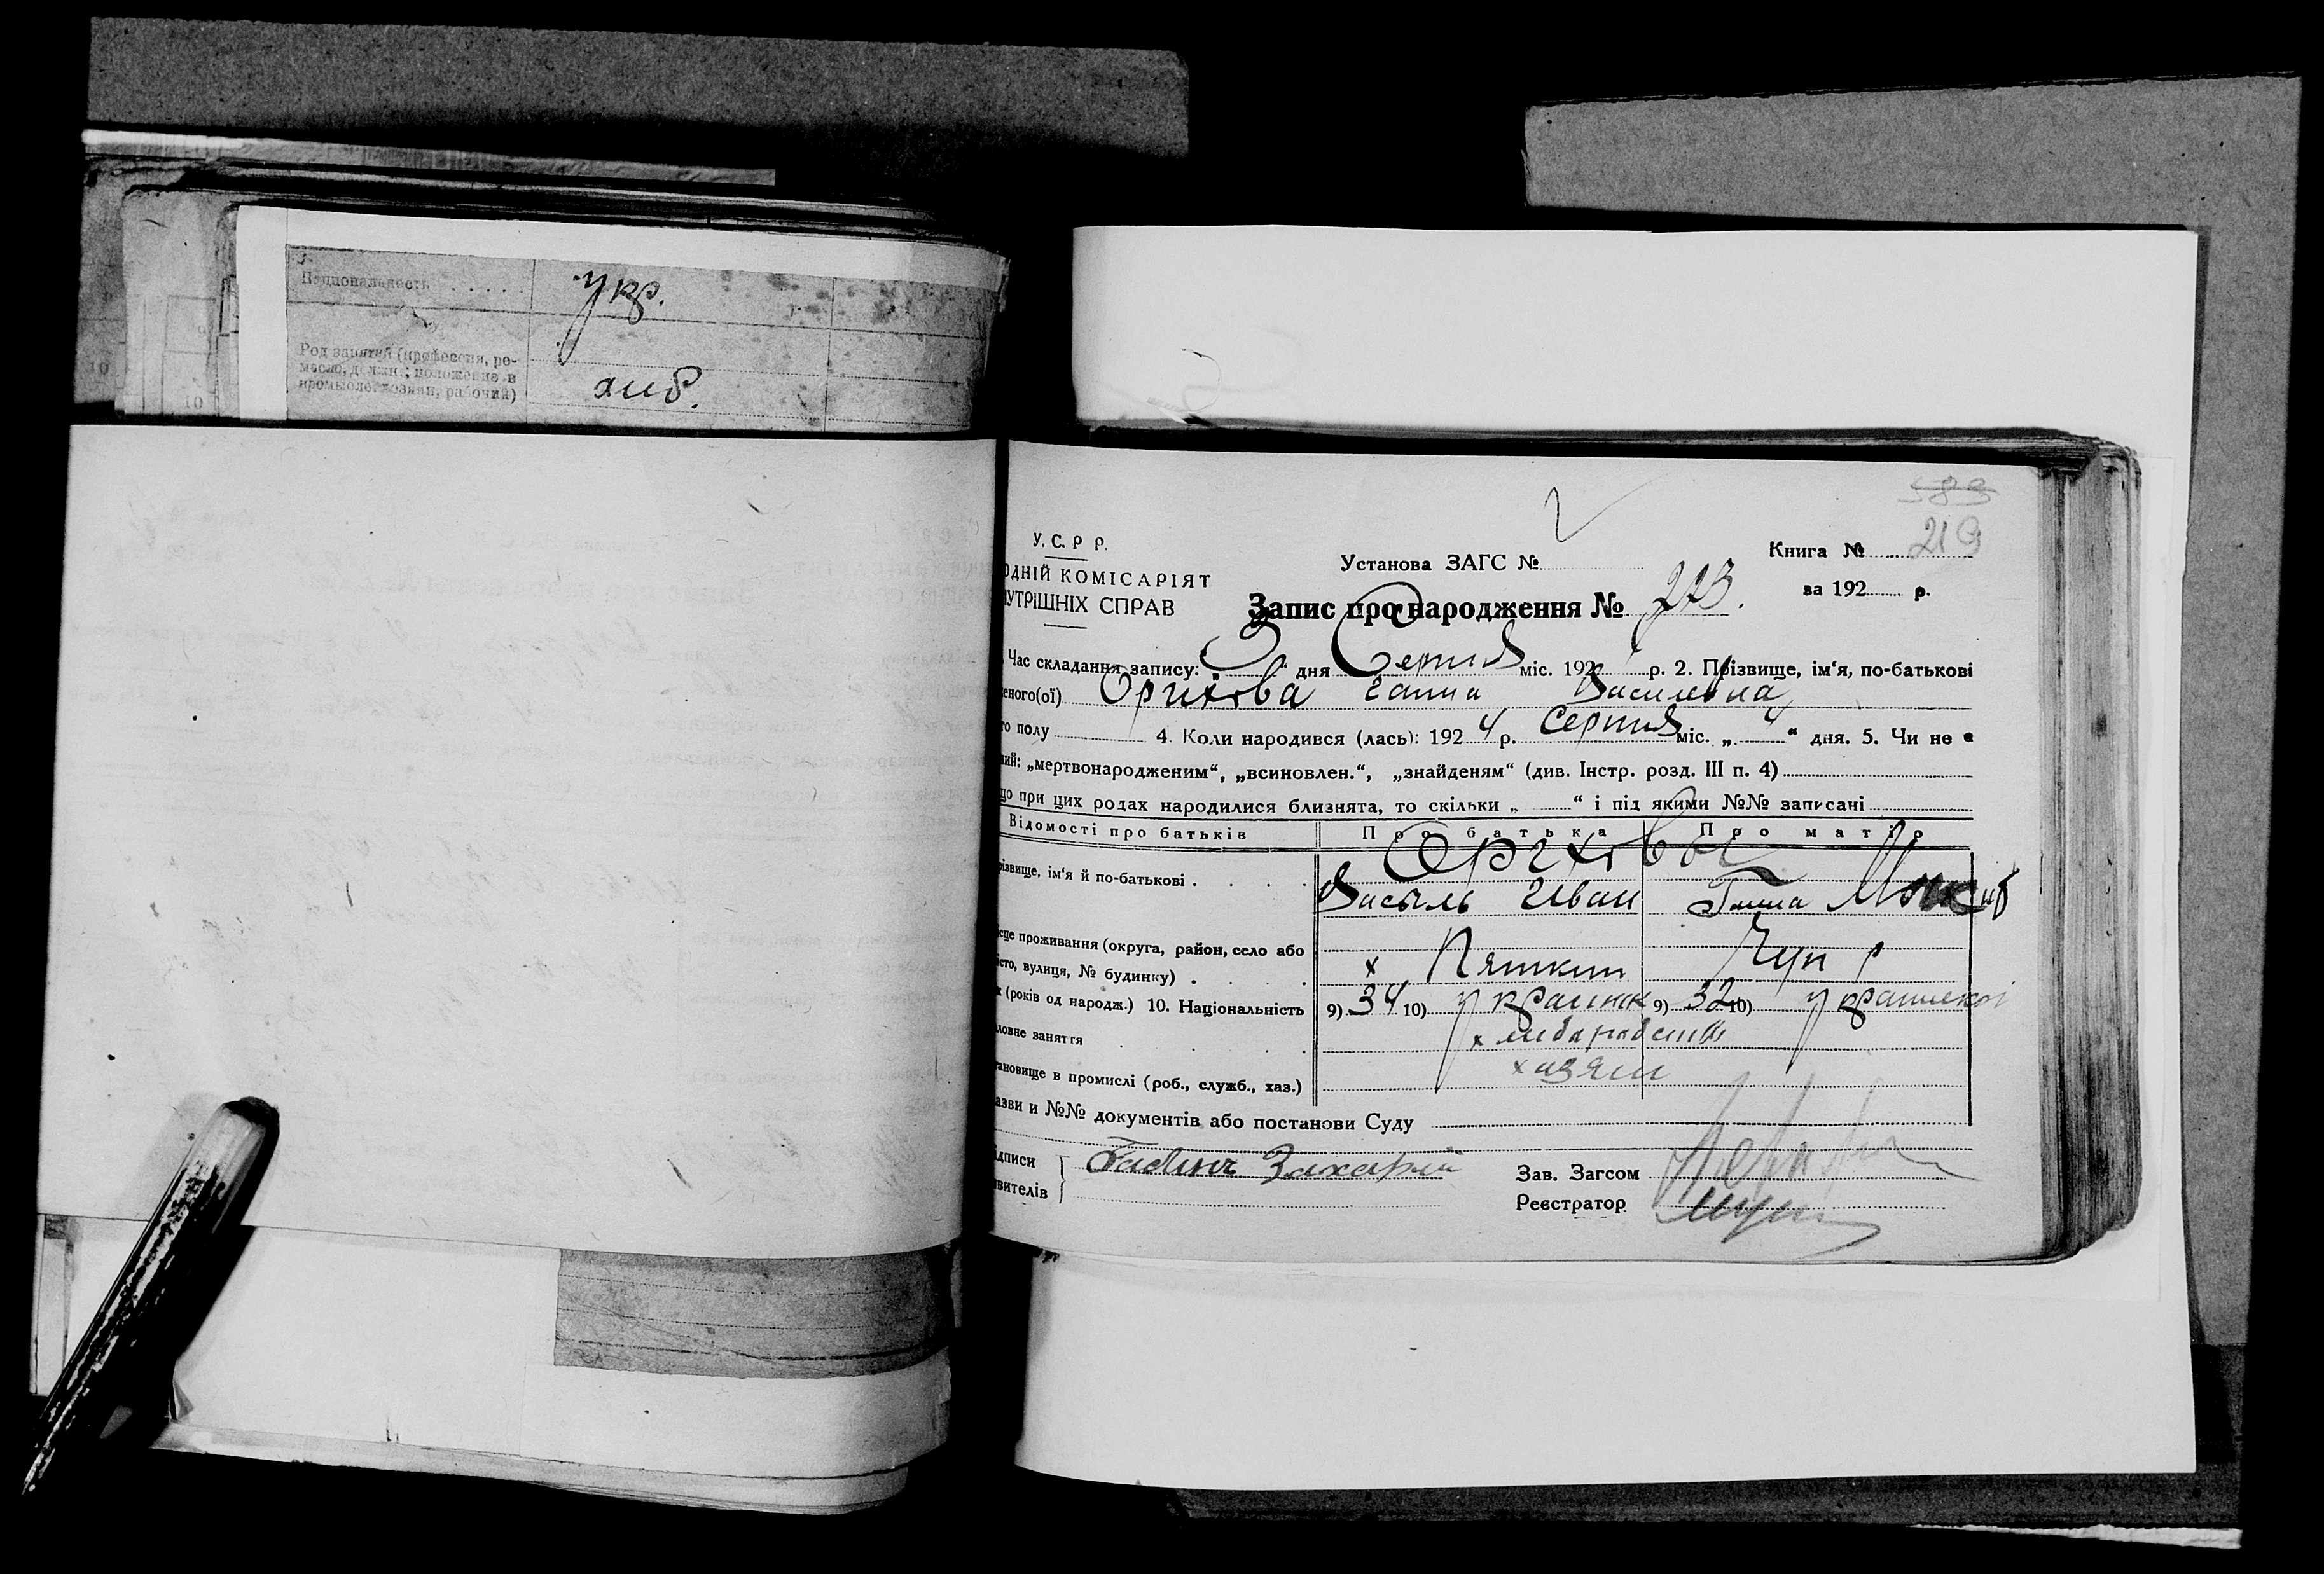 Национальность
укр.
Род занятий (профессия, ре-
месло, должн.; положение в
промысле: хозяин, рабочий)
хліб.
10
10
583
219
У. С. Р Р.
ОДНІЙ КОМІСАРІЯТ
НУТРІШНІХ СПРАВ
Установа ЗАГС №
Книга №
за 192 р.
Запис про народження № 223.
Час складання запису: „ “ дня Серпня міс. 192 р. 2. Прізвище, ім‘я, по-батькові
еного(ої) Оріхова Ганна Василевна
го полу 4. Коли народився (лась): 192 4 р. Серпня міс. „ 4 “ дня. 5. Чи не є
ний: „мертвонародженим“, „всиновлен.“, „знайденям“ (див. Інстр. розд. III п. 4)
що при цих родах народилися близнята, то скільки „ “ і під якими №№ записані
Відомості про батьків Про батька Про матір
різвище, ім‘я й по-батькові
Василь Иван Ганна
ісце проживання (округа, район, село або
істо, вулиця, № будинку) х
к (років од народж.) 10. Національність 9) 34 10) україник 9) 32 10)
ловне заняття
тановище в промислі (роб., служб., хаз.) хазяін
азви и №№ документів або постанови Суду
ідписи Захарий
явителів
Зав. Загсом
Реєстратор